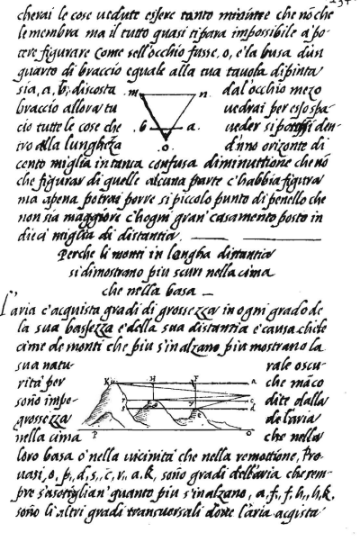 cherai le cose vedute essere tanto minime che nõ che
le membra ma il tutto quasi ti para impossibile a po-
tere figurare come se all'occhio fusse, o, e la busa d'un
quarto di braccio eguale alla tua tavola dipinta
sia, a, b, discosta m n dal'occhio mezo
braccio allora tu vedrai per esso spa-
cio tutte le cose che b a. veder si possi den-
tro alla lunghezza o d'uno orizonte di
cento miglia in tanta confusa diminuttione che nõ
che figurar di quelle alcuna parte c'habbia figura
ma apena potrai porre si piccolo punto di penello che
non sia maggiore c'hogni gran' casamento posto in
dieci miglia di distantia.
Perche li monti in longha distantia
si dimostrano piu scuri nella cima
che nella basa
L'aria c'acquista gradi di grossezza in ogni grado de
la sua bassezza e della sua distantia e causa ch'e le
cime de monti che piu s'inalzano piu mostrano la
sua natu- rale oscu-
rità per che mãco
sono impe- dite dalla
grossezza de l'aria
nella cima che nella
loro basa o nella vicinità che nella remottione, Pro-
vasi, o, p, d, s, c, r, a, k, sono gradi dell'aria che sem-
pre s'asotiglian' quanto piu s'inalzano, a, f, f, h, h, k,
sono li altri gradi transversali dove l'aria acqista